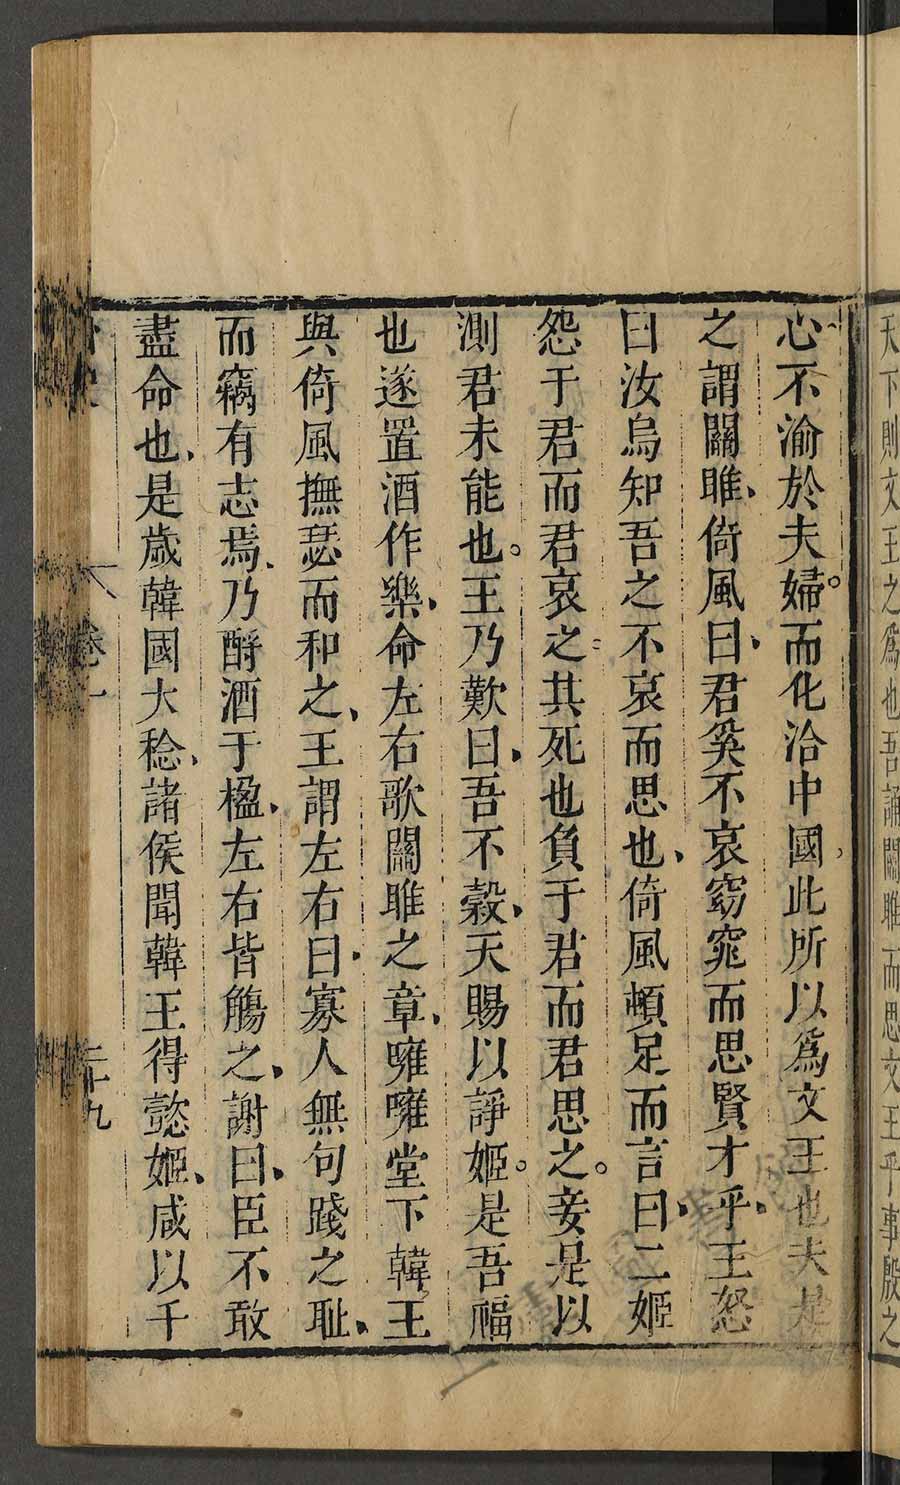 天下則文王之爲也吾誦關雎而思文王乎事殷之
心不渝於夫婦而化洽中國此所以爲文王也夫是
之謂關雎倚風曰君奚不哀窈窕而思賢才乎王怒
曰汝烏知吾之不哀而思也倚風頓足而言曰二姬
怨于君而君哀之其死也負于君而君思之妾是以
測君未能也王乃歎曰吾不穀天賜以諍姬是吾福
也遂置酒作樂命左右歌關雎之章雍雍堂下韓王
與倚風撫瑟而和之王謂左右曰寡人無句踐之恥
而竊有志焉乃酹酒于楹左右皆觴之謝曰臣不敢
盡命也是歲韓國大稔諸侯聞韓王得懿姬咸以千
卷一
二十九